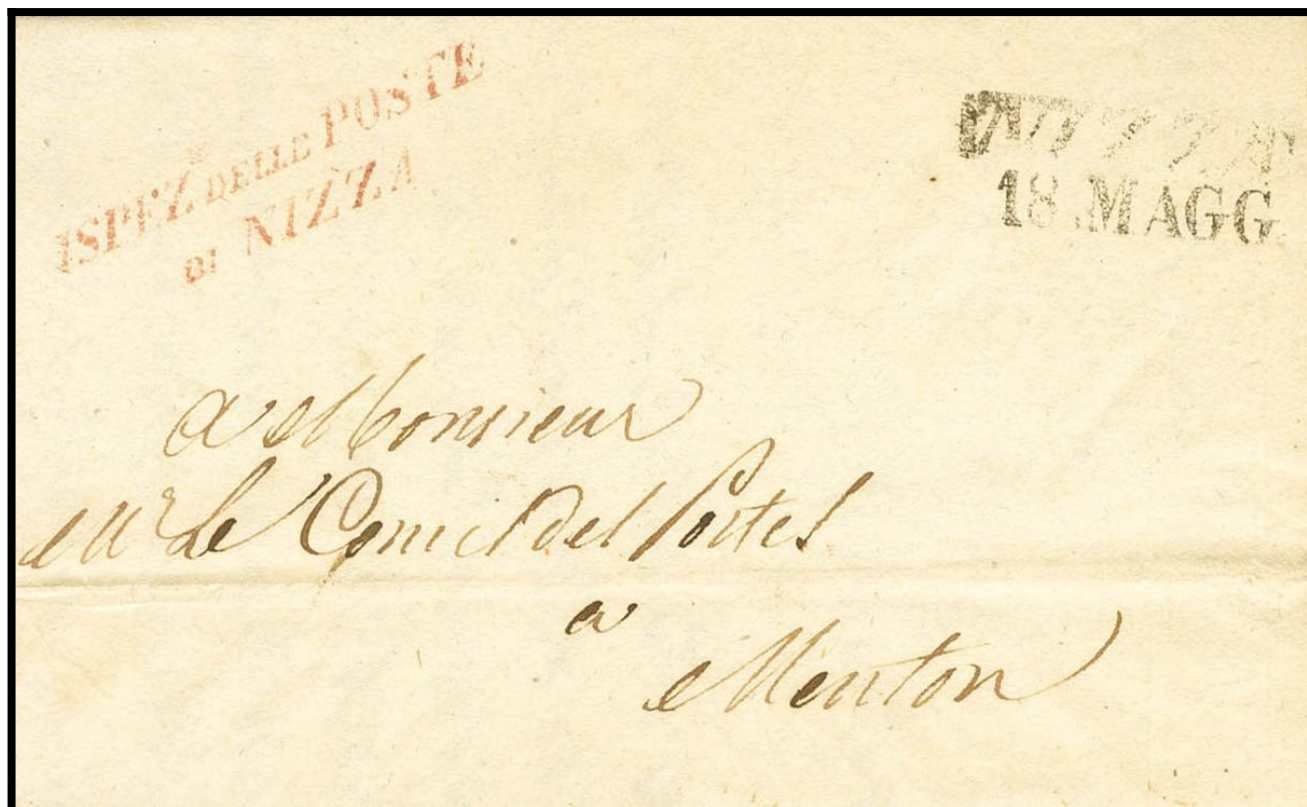 ISPEZ DELLE POSTE
DI NIZZA
NIZZA
18 MAGG.
a Monsieur
Mr Le Comis des Postes
a
Menton